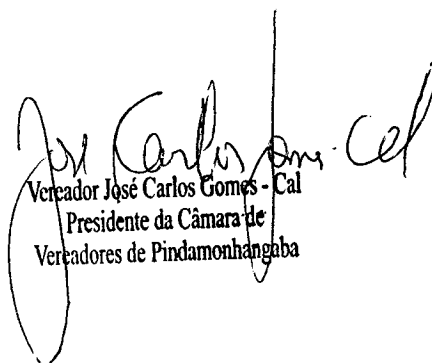 José Carlos Gomes - Cal
Vereador José Carlos Gomes - Cal
Presidente da Câmara de
Vereadores de Pindamonhangaba